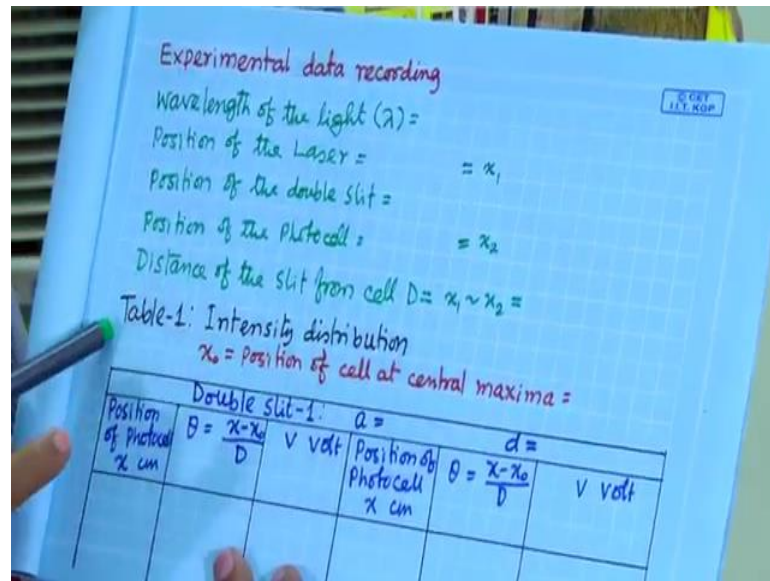 Experimental data recording
© CET
I.I.T. KGP
Wavelength of the light (λ) =
Position of the Laser =
= x₁
Position of the double slit =
Position of the Photocell =
= x₂
Distance of the slit from cell D = x₁ ~ x₂ =
Table-1: Intensity distribution
x₀ = Position of cell at central maxima =
Double slit-1: a = d =
Position of Photocell x cm
θ = (x-x₀)/D
V volt
Position of Photocell x cm
θ = (x-x₀)/D
V volt